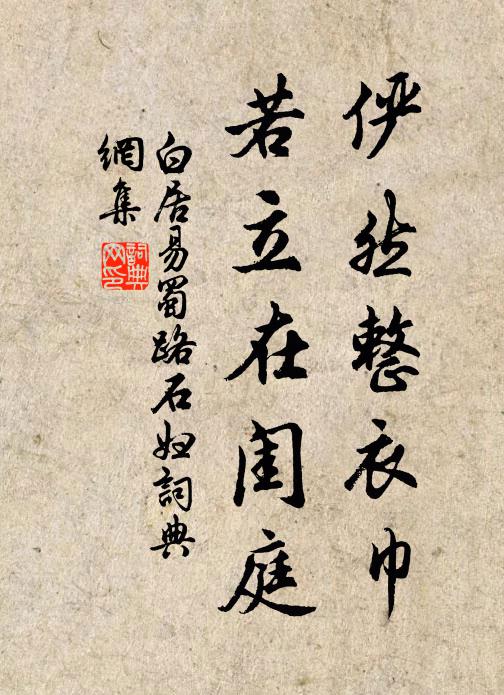 俨然整衣巾
若立在闺庭
白居易蜀路石妇詞典
網集
詞典网印